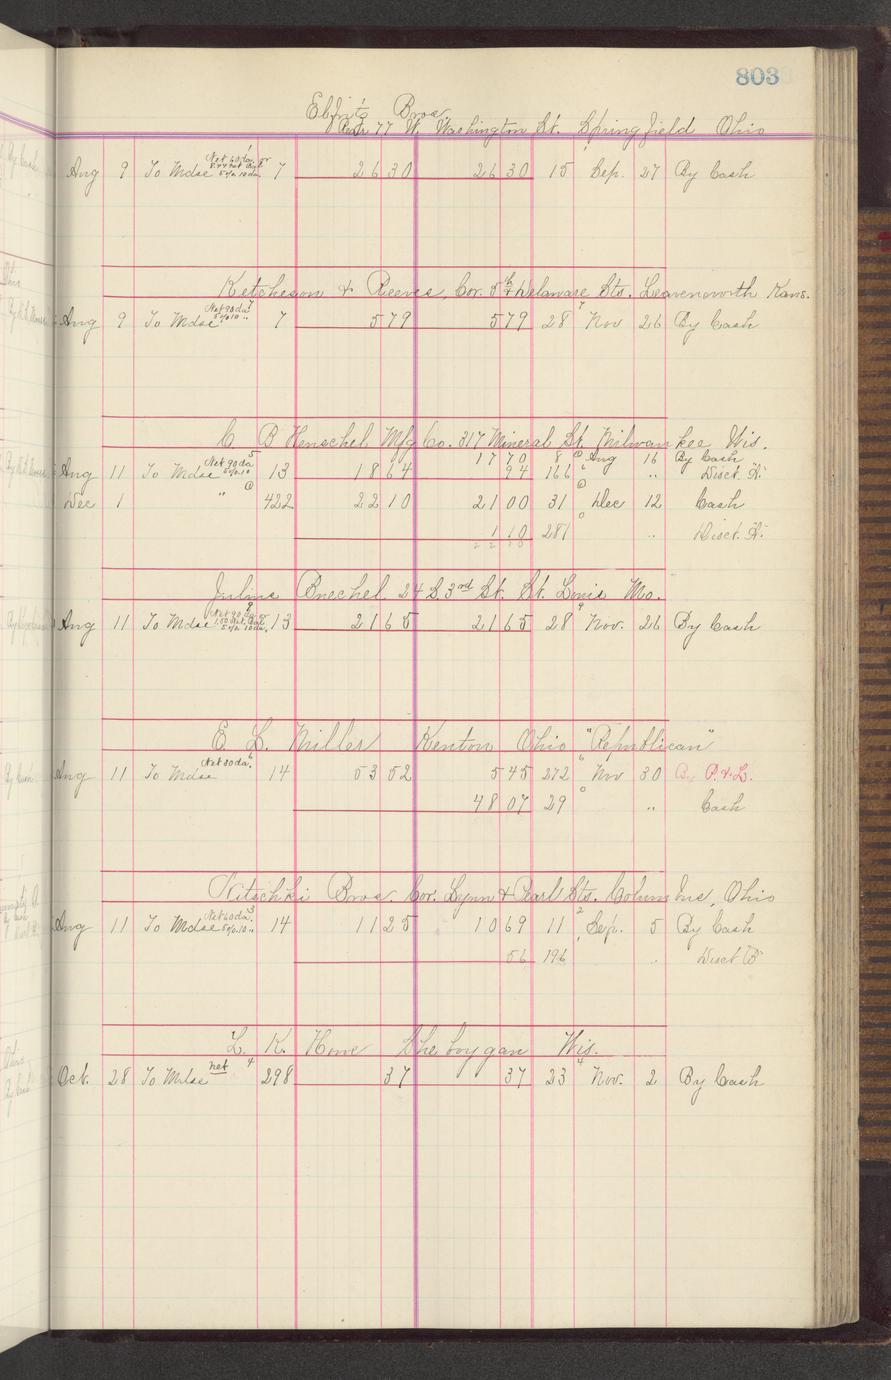 803
Bros.
77 W. Washington St. Springfield Ohio
Aug 9 To Mdse Net 60 da. 5% 10 da. 7 26 30 26 30 15 Sep. 27 By Cash
Ketcheson & Reeves, Cor. 5th & Delaware Sts. Leavenworth Kans.
Aug 9 To Mdse Net 90 da 5% 10 " 7 5 79 5 79 28 Nov 26 By Cash
C B Henschel Mfg Co. 317 Mineral St. Milwaukee Wis.
17 70 8 Aug 16 By Cash
Aug 11 To Mdse Net 90 da 5% 10 13 18 64 94 166 " " Disct. A.
Dec 1 " 422 22 10 21 00 31 Dec 12 Cash
1 10 281 " Disct. A.
22 10
Julius Buechel 24 S. 3rd St. St. Louis Mo.
Aug 11 To Mdse Net 90 da 5% 10 da. 13 21 65 21 65 28 Nov. 26 By Cash
E. L. Miller Kenton Ohio "Republican"
Aug 11 To Mdse Net 80 da. 14 53 52 5 45 272 Nov 30 By P. & L.
48 07 29 " Cash
Nitschki Bros. Cor. Lynn & Pearl Sts. Columbus, Ohio
Aug 11 To Mdse Net 60 da. 5% 10 " 14 11 25 10 69 11 Sep. 5 By Cash
56 196 " Disct B
L. K. Howe Sheboygan Wis.
Oct. 28 To Mdse net 4 298 37 37 23 4 Nov. 2 By Cash